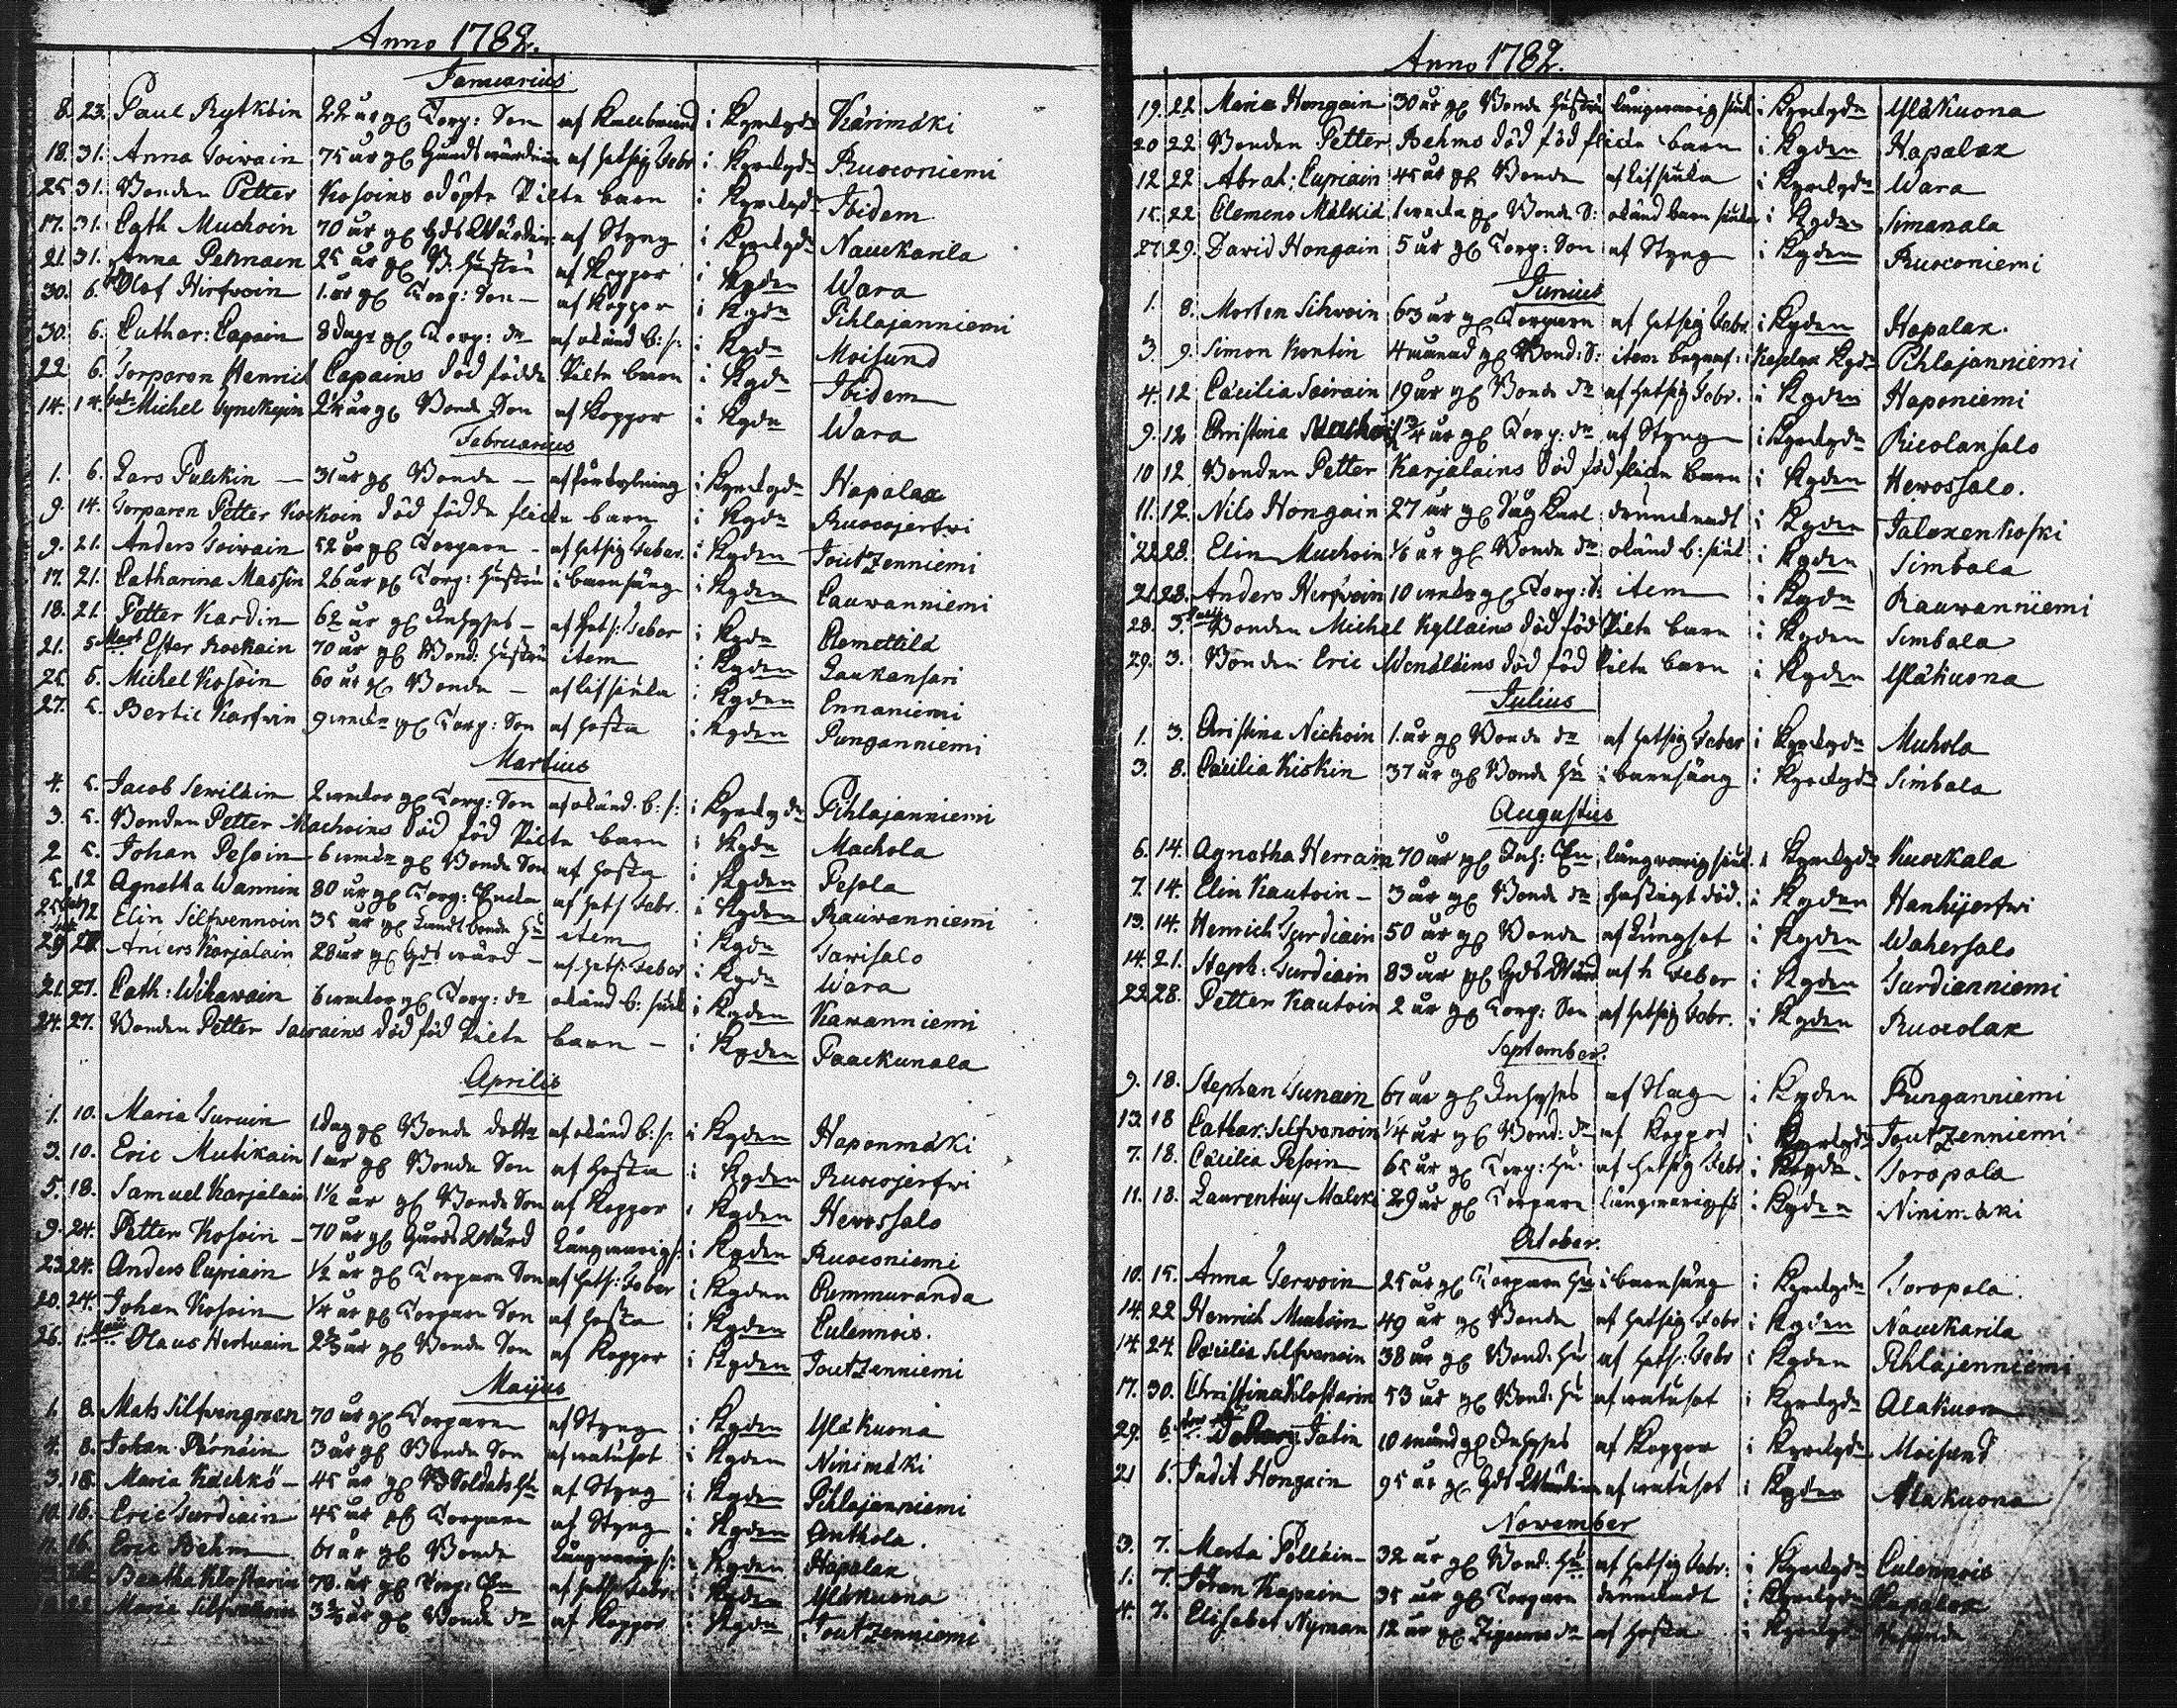 Anno 1782.
Januarius
8. 23. Paul Rytköin 22 år gl Torp: Son af Kallbrand i Kyrckgdn Kärimäki
18. 31. Anna Toivain 75 år gl Gårds wärdinn af hetsig Feber i Kyrckgdn Ruoconiemi
25. 31. Bonden Petter Kosoins odöpte Pilte barn i Kyrckgdn Ibidem
17. 31. Cath Muchoin 70 år gl Gds Wärdin: af Styng i Kyrckgdn Nauckarila
21. 31. Anna Pesonain 25 år gl B: Hustru af Koppor i Kgden Wara
30. 6. Olof Hirfvoin 1. år gl Torp: Son af Koppor i Kgdn Pihlajanniemi
30. 6. Cathar: Capain 8 dagr gl Torp: dr af okänd b: s: i Kgdn Moisund
22 6. Torparen Henrich Capains död födde Pilte barn i Kgdn Ibidem
14. 14. Michel Tynckyin 2¼ år gl Bonde Son af Koppor i Kgdn Wara
Februarius
1. 6. Lars Pulkin 31 år gl Bonde af förkylning i Kyrckgdn Hapalax
9. 14. Torparen Petter Kockoin död födde flicke barn i Kgdn Ruocojerfwi
9. 21. Anders Toivain 52 år gl Torpare af hetsig Feber. i Kgden Joutzenniemi
17. 21. Catharina Massin 26 år gl Torp: Hustru i barnsäng i Kgden Cauwanniemi
18. 21. Petter Kardin 62 år gl Inhyses af Hets: Feber i Kgdn Clemettilä
21. 5 Mart Ester Kockain 70 år gl Bond: Hustru item i Kgden Laukansari
25. 5. Michel Kosoin 60 år gl Bonde af lifsiuka i Kgden Ennaniemi
27. 5. Bertil Karfwin 9 weckr gl Torp: Son af hosta i Kgden Punganniemi
Martius
4. 5. Jacob Sewiläin 2 weckor gl Torp: Son af okänd b: s: i Kyrckgdn Pihlajanniemi
3. 5. Bonden Petter Machoins död föd Pilte barn i Kgdn Machola
2 5. Johan Pesoin 6 weckr gl Bonde Son af hosta i Kgden Pesola
5. 12 Agnetha Wannin 80 år gl Torp: Encka af hets Febr. i Kgden Rauwanniemi
25 12 Elin Silfvennoin 35 år gl Landtbonde Hu item i Kgdn Sawisalo
29 27. Anders Karjalain 28 år gl Gds wärd af hets: Feber i Kgdn Wara
21 27. Cath: Wikawain 6 weckor gl Torp: dr okänd b: siuk i Kgden Kawanniemi
24. 27. Bonden Petter Savains död föd Pilte barn i Kgden Paackunala
Aprilis
1. 10. Maria Turuin 1 dag gl Bonde dotter af okänd b: s: i Kgden Haponmäki
3. 10. Eric Mutikain 1 år gl Bonde Son af hosta i Kgden Ruocojerfwi
5. 18. Samuel Karjalain 1½ år gl Bonde Son af Koppor i Kgden Hevossalo
9. 24. Petter Kosoin 70 år gl Gårds Wärd Långwarig s: i Kgden Ruoconiemi
23 24. Anders Cupiain ½ år gl Torpare Son af hets: Feber i Kgden Pummuranda
20. 24. Johan Kosoin ¼ år gl Torpare Son af hosta i Kgden Culennois.
26. 1. Maii Olaus Hertuain 2⅔ år gl Bonde Son af Koppor i Kgden Joutzenniemi
Maijus
1. 8. Mats Silfvengreen 70 år gl Torpare af Styng i Kgden Yläkuona
4. 8. Johan Pörnäin 3 år gl Bonde Son af watusot i Kgden Ninimäki
3. 18. Maria Kächkö 45 år gl B Soldats Hu af Styng i Kgden Pihlajanniemi
10. 16. Eric Turdiain 45 år gl Torpare af Styng i Kgden Anthola.
11. 16. Eric Behm 61 år gl Bonde Långwarig s: i Kgden Hapalax
Beatha Klostarin 78. år gl Torp: En af hets Febr. i Kgden Yläkuona
22. Maria Silfvenoin 3⅔ år gl Bonde dr af Koppor i Kgdn Joutzenniemi
Anno 1782.
19. 22 Maria Hongain 30 år gl Bonde Hustru långwarig siuk i Kyrckgdn Yläkuona
20 22 Bonden Petter Behms död föd flicke barn i Kgden Hapalax
12 22 Abrah: Cupiain 45 år gl Bonde af lifsiuka i Kyrckgdn Wara
15. 22 Clemens Mälkiä 1 wecka gl Bonde S: okänd barn siuka i Kgden Simanala
27. 29. David Hongain 5 år gl Torp: Son af Styng i Kgden Ruoconiemi
Junius
1. 8. Morten Sihvoin 63 år gl Torpare af hetsig Febr. i Kgden Hapalax.
3. 9. Simon Kontin 4 månad gl Bond: S: item begraf: i Keselax Kgdn Pihlajanniemi
4. 12 Cäcilia Savain 19 år gl Bonde dr af hetsig Febr. i Kgden Haponiemi
9. 12 Christina Muchoin 1¾ år gl Torp: dr af Styng i Kyrckgdn Ricolansalo
10 12 Bonden Petter Karjalains död föd flicke barn i Kgden Hewossalo.
11. 12. Nils Hongain 27 år gl Dug Karl drunknadt i Kgden Jaloxenkoski
22 28. Elin Muchoin ⅙ år gl Bonde dr okänd b: siuk i Kgden Simbala
21. 28. Anders Herfvoin 10 weckr gl Torp: S: item i Kgdn Rauwanniemi
28. 3. Bonden Michel Kylläins död föd Pilte barn i Kgden Simbala
29. 3. Bonden Eric Wenäläins död föd Pilte barn i Kgden Yläkuona
Julius
1. 3. Christina Nichoin 1. år gl Bonde dr af hetsig Feber i Kyrckgdn Muhola
3. 8. Cäcilia Kiskin 37 år gl Bonde Hu i barnsäng i Kyrckgdn Simbala
Augustus
6. 14. Agnetha Herrain 70 år gl Inh: En långwarig siuk. i Kyrckgdn Kuockala
7. 14. Elin Kautoin 3 år gl Bonde dr hastigt död. i Kgden Hanhijerfwi
13. 14. Henrich Turdiain 50 år gl Bonde af Lungsot i Kgden Wahersalo
14. 21. Steph: Turdiain 83 år gl Gds Wärd af h Feber i Kgden Turdianniemi
22 28. Petter Kautoin 2 år gl Torp: Son af hetsig Febr. i Kgden Ruocolax
September.
9. 18. Stephan Tunain 67 år gl Inhyses af Slag i Kgden Punganniemi
13. 18 Cathar. Silfvenoin ¼ år gl Bond: dr af Koppor i Kyrckgdn Joutzenniemi
7. 18. Cäcilia Pesoin 65 år gl Torp: Hu: af hetsig Febr i Kgdn. Toropala
11. 18. Laurentius Malski 29 år gl Torpare långwarig s: i Kgden Ninimäki
October.
10. 15. Anna Tervoin 25 år gl Torpare Hu i barnsäng i Kyrckgdn Toropala.
14. 22 Henrich Muchoin 49 år gl Bonde af hetsig Febr i Kgden Nauckarila
14. 24. Cäcilia Silfvenoin 38 år gl Bond: Hu af hets: Febr i Kgden Pihlajenniemi
17. 30. Christina Klostarin 53 år gl Bond: Hu af watusot i Kyrckgdn Alakuona
29. 6. Jatin 10 månd gl Inhyses af Koppor i Kyrckgdn Moisund
21 6. Judit Hongain 95 år gl Gds Wärdinn af watusot i Kgden Alakuona
November
3. 7. Marta Pölläin 32 år gl Bond: Hu af hetsig Febr: i Kyrckgdn Culennois
1. 7. Jöran Kapain 35 år gl Torpare drunknadt i Kyrckgdn Hapalax
4. 7. Elisabet Nyman 12 år gl Zigenares dr af hosta i Kyrckgdn